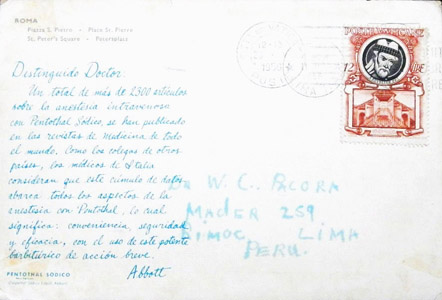 ROMA
Piazza S. Pietro - Place St. Pierre
St. Peter's Square - Petersplatz
Distinguido Doctor:
Un total de más de 2300 artículos
sobre la anestesia intravenosa
con Pentothal Sodico, se han publicado
en las revistas de medicina de todo
el mundo. Como los colegas de otros
países, los médicos de Italia
consideran que este cúmulo de datos
abarca todos los aspectos de la
anestesia con Pentothal, lo cual
significa: conveniencia, seguridad
y eficacia, con el uso de este potente
barbitúrico de acción breve.
Abbott
PENTOTHAL SODICO
POSTE VATICANE
12 LIRE
DR W. C. ACORA
MADER 259
RIMAC LIMA
PERU.